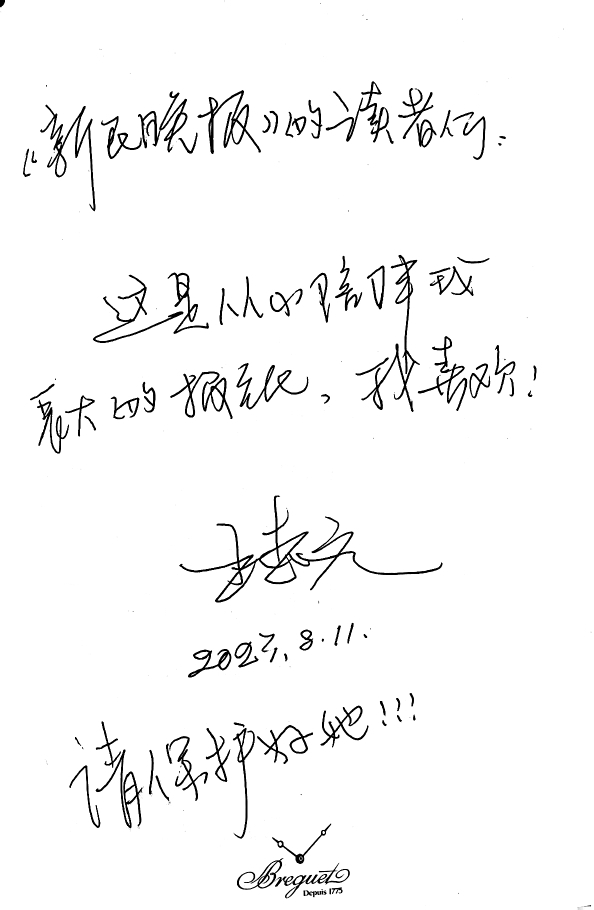 《新民晚报》的读者们：
这是从小陪伴我
长大的报纸，我喜欢！
2023.8.11.
请保护好她!!!
Breguet
Depuis 1775